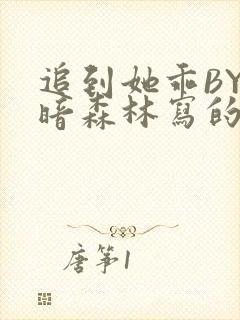 追到她乖BY
暗森林写的
唐筝1